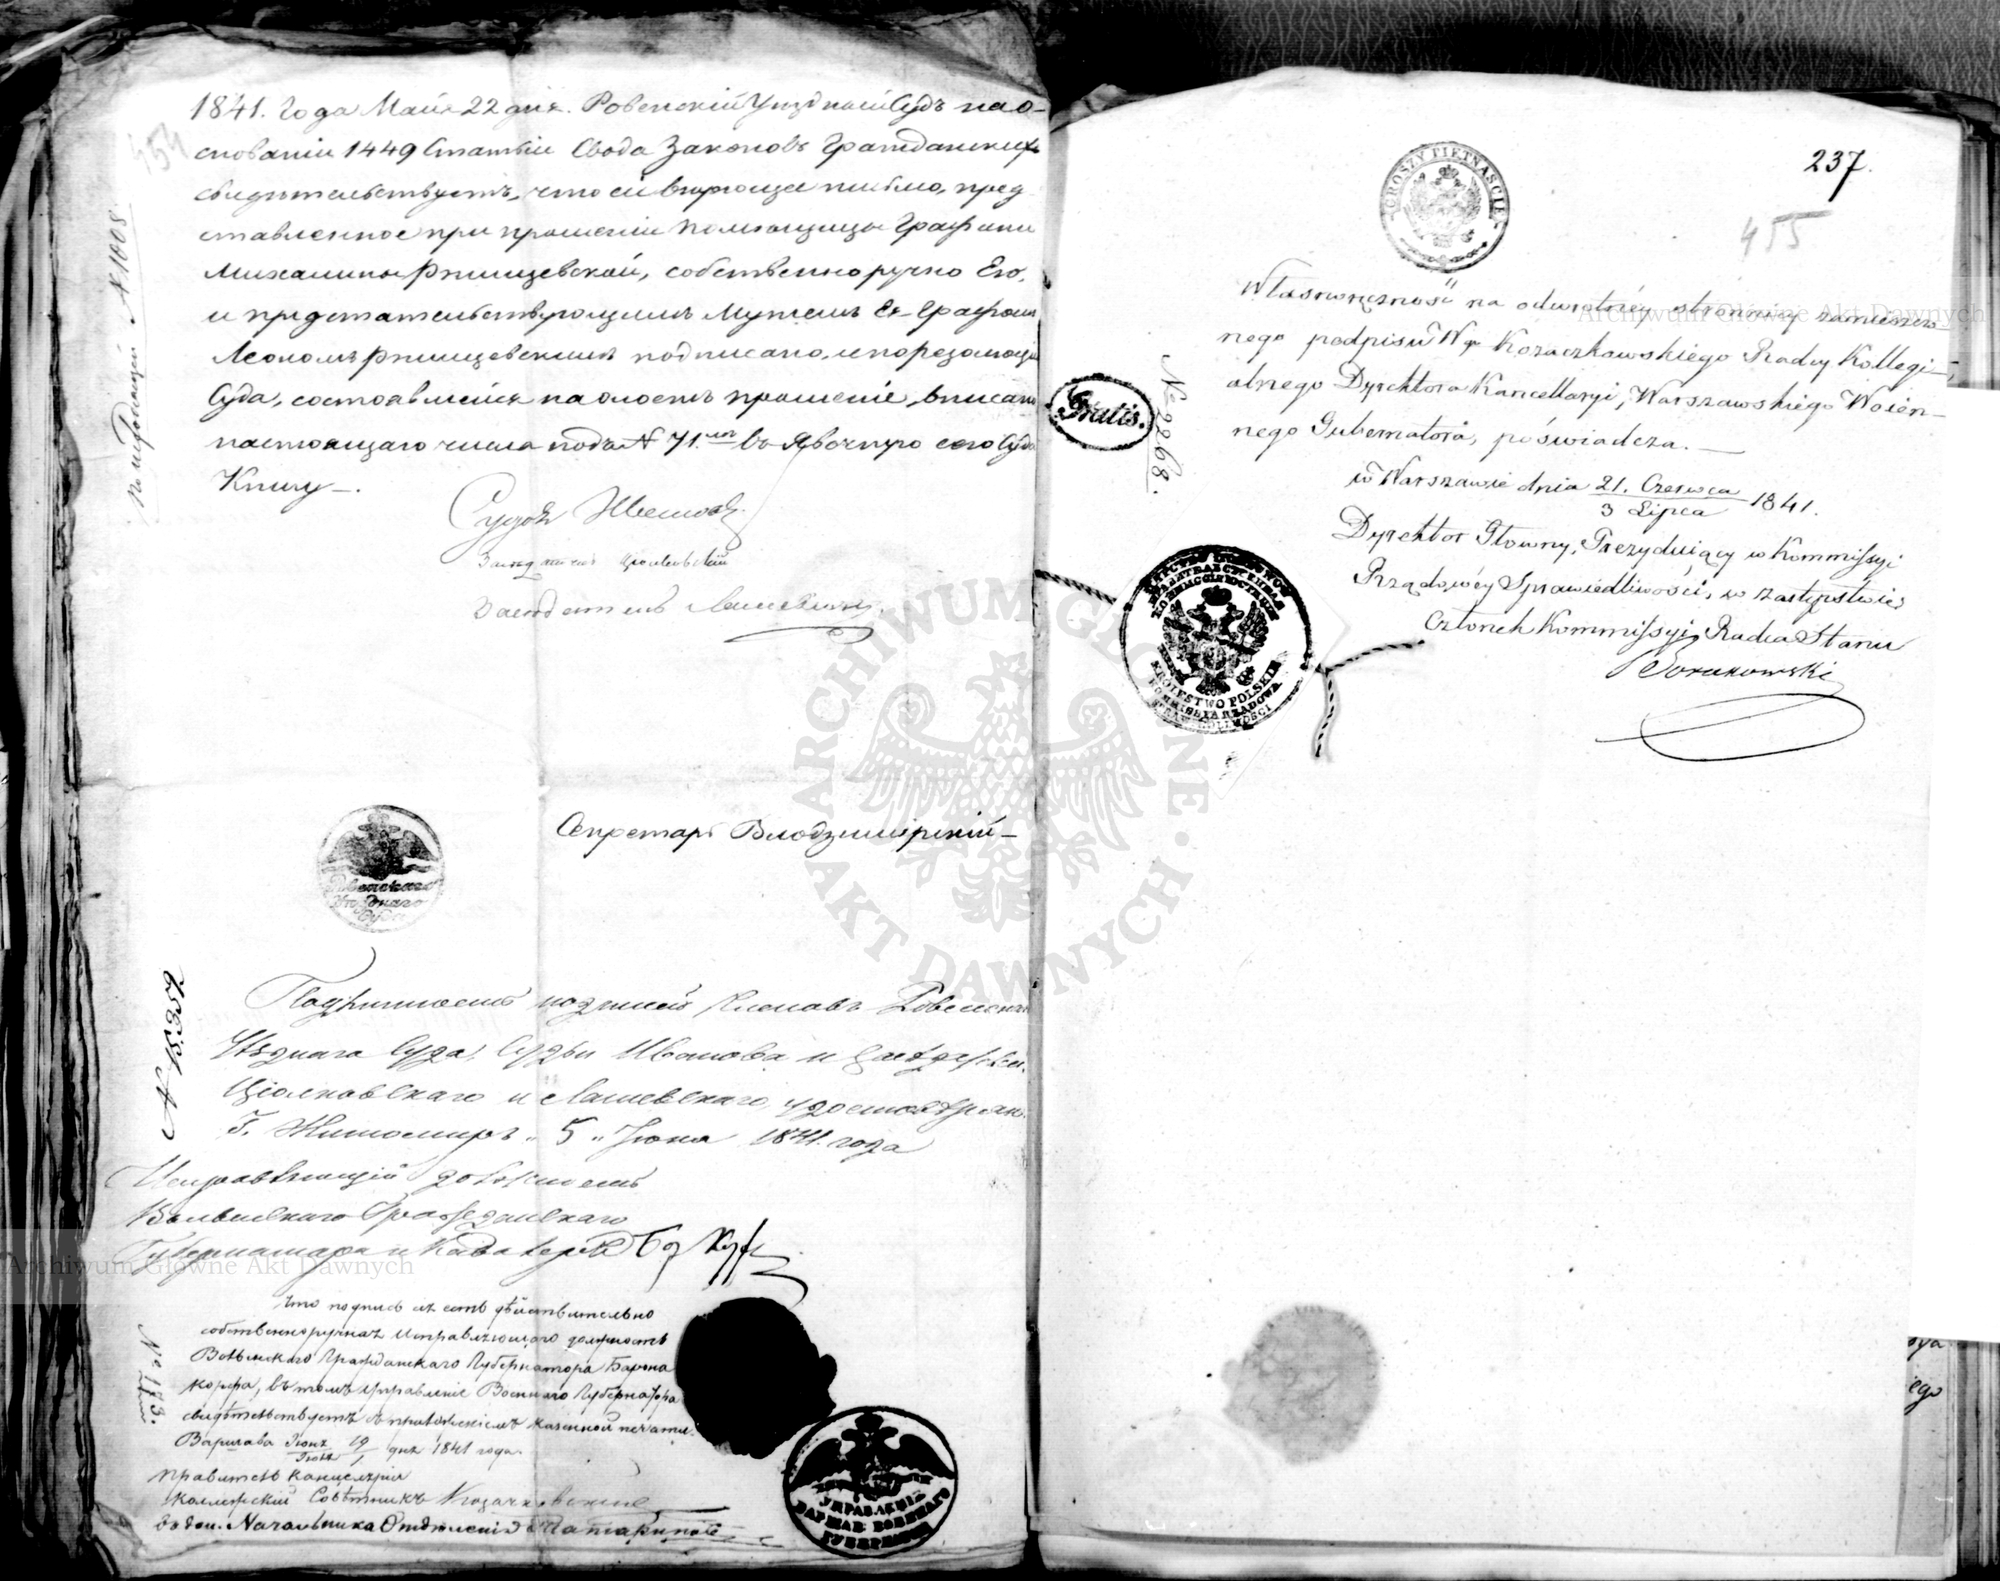 454
1841. Года Майя 22 дня. Ровенскій Уѣздный Судъ на о-
снованіи 1449 Статьи Свода Законовъ Гражданскихъ
свидѣтельствуетъ, что сіе вѣрющее письмо, пред
ставленное при прошеніи Помѣщицы Графини
Михалины Ржищевской, собственноручно Ею,
и предстательствующимъ Мужемъ Ея Графомъ
Леономъ Ржищевскимъ подписано, и по резолюціи
Суда, состоявшейся на ономъ прошеніи, вписано
настоящаго числа подъ № 71. въ Явочную сего Суда
Книгу —.
Судья
Засѣдатель Ціолковскій
Засѣдатель
Секретарь Влодзимірскій —
Ровенскаго
Уѣзднаго
Суда
№ 15352
Подлинность подписей Членовъ Ровенскаго
Уѣзднаго Суда, Судьи Иванова и Засѣдателей
Ціолковскаго и Лашевскаго удостовѣряю.
Г. Житомиръ „ 5 „ Іюня 1841. года
Исправляющій должность
Волынскаго Гражданскаго
Губернатора и Кавалеръ Бар Корфъ
Что подпись сія есть дѣйствительно
собственноручная Исправляющаго должность
Волынскаго Гражданскаго Губернатора Барона
Корфа, въ томъ Управленіе Военнаго Губернатора
свидѣтельствуетъ съ приложеніемъ казенной печати.
Варшава Іюня 19 / Іюля 1 дня 1841 года.
Правитель Канцеляріи
Коллежскій Совѣтникъ Козачковскій
Начальника Отдѣленія
УПРАВЛЕНІЯ
ВАРШАВ: ВОЕННАГО
ГУБЕРНАТОРА
GROSZY PIĘTNAŚCIE
237.
455
Własnoręczność na odwrotnéy stronnicy zamieszczo
nego podpisu W° Kozaczkowskiego Radcy Kollegi-
alnego Dyrektora Kancellaryi, Warszawskiego Woien-
nego Gubernatora, poświadcza. —
Gratis.
№ 2268.
w Warszawie dnia 21. Czerwca / 3 Lipca 1841.
Dyrektor Głowny, Prezyduiący w Kommissyi
Rządowéy Sprawiedliwości, w zastępstwie,
Członek Kommissyi, Radca Stanu
KRÓLESTWO POLSKIE
KOMMISSYA RZĄDOWA
SPRAWIEDLIWOŚCI
ARCHIWUM GŁÓWNE AKT DAWNYCH
Archiwum Główne Akt Dawnych
Archiwum Główne Akt Dawnych